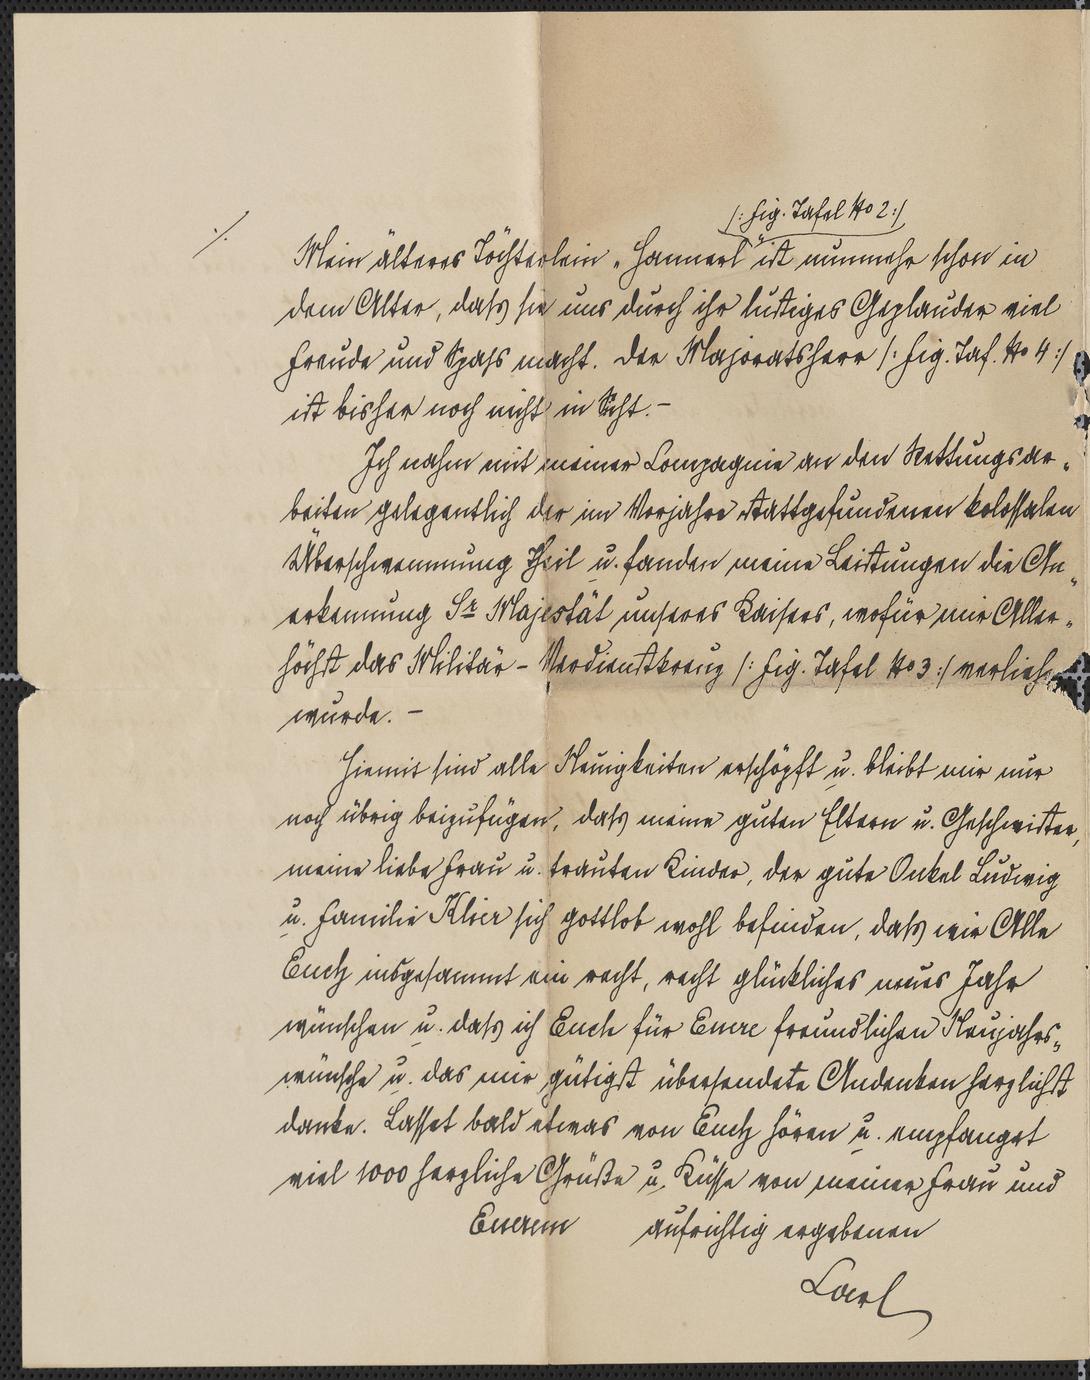 /: fig. Tafel No 2 :/
./.
Mein älteres Töchterlein „Hannerl" ist nunmehr schon in
dem Alter, dass sie uns durch ihr lustiges Geplauder viel
Freude und Spass macht. Der Majoratsherr /: fig. Taf. No 4 :/
ist bisher noch nicht in Sicht. –
Ich nahm mit meiner Compagnie an den Rettungsar„
beiten gelegentlich der im Vorjahre stattgefundenen kolossalen
Überschwemmung Theil u. fanden meine Leistungen die An„
erkennung Sr Majestät unseres Kaisers, wofür mir Aller„
höchst das Militär – Verdienstkreuz /: fig. Tafel No 3 :/ verliehen
wurde. –
Hiemit sind alle Neuigkeiten erschöpft u. bleibt mir nur
noch übrig beizufügen, dass meine guten Eltern u. Geschwister,
meine liebe Frau u. trauten Kinder, der gute Onkel Ludwig
u. Familie Klier sich gottlob wohl befinden, dass wir Alle
Euch insgesammt ein recht, recht glückliches neues Jahr
wünschen u. dass ich Euch für Euere freundlichen Neujahrs„
wünsche u. das mir gütigst übersendete Andenken herzlichst
danke. Lasset bald etwas von Euch hören u. empfanget
viel 1000 herzliche Grüße u. Küsse von meiner Frau und
Euerem aufrichtig ergebenen
Carl